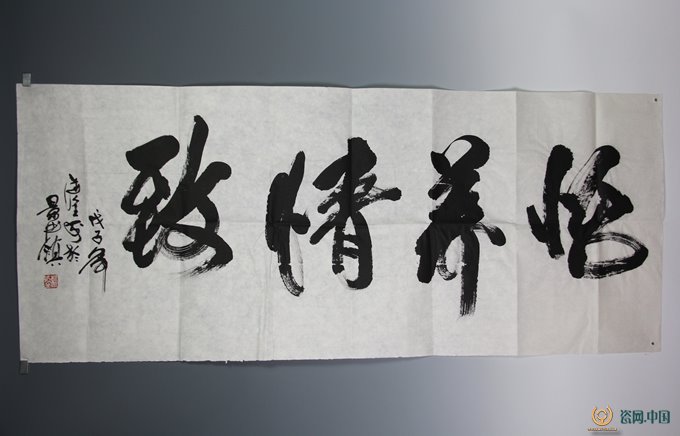 养情致
戊子年
写于
景德镇
瓷网.中国